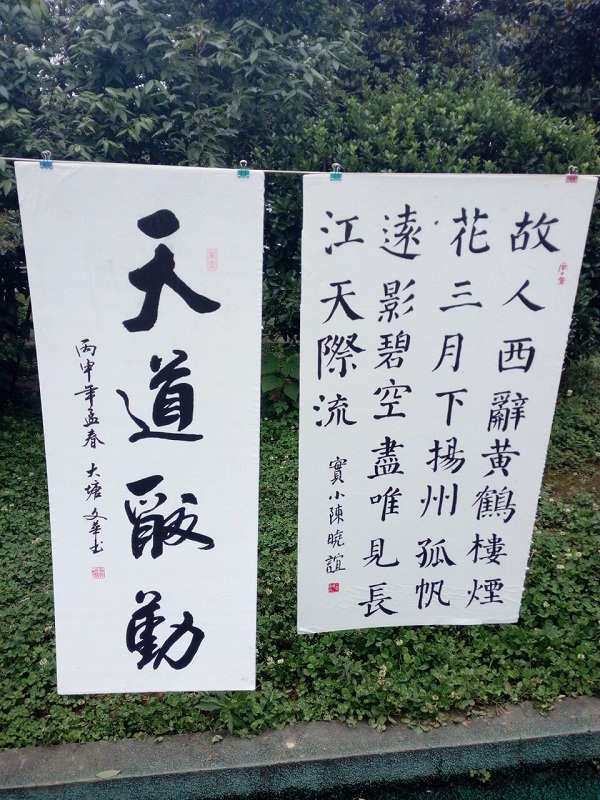 故人西辭黄鶴樓煙
花三月下揚州孤帆
遠影碧空盡唯見長
江天際流
實小陳曉誼
天道酬勤
丙申年孟春 大塘文華书